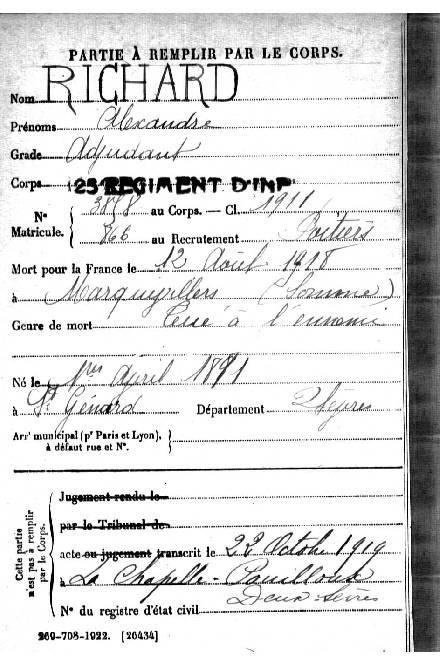 PARTIE À REMPLIR PAR LE CORPS.
Nom RICHARD
Prénoms Alexandre
Grade Adjudant
Corps 25 REGIMENT D'INF
N° Matricule. { au Corps. — Cl. 1911
766 au Recrutement Poitiers
Mort pour la France le 12 Août 1918
à (Somme)
Genre de mort Tué à l'ennemi
Né le 1er April 1891
à St Génard Département 2 Sèvres
Arrt municipal (pr Paris et Lyon), à défaut rue et N°.
Cette partie n'est pas à remplir par le Corps.
Jugement rendu le
par le Tribunal de
acte ou jugement transcrit le 22 Octobre 1919
à La Chapelle-Pouilloux
Deux-Sèvres
N° du registre d'état civil
269-708-1922. [26434]